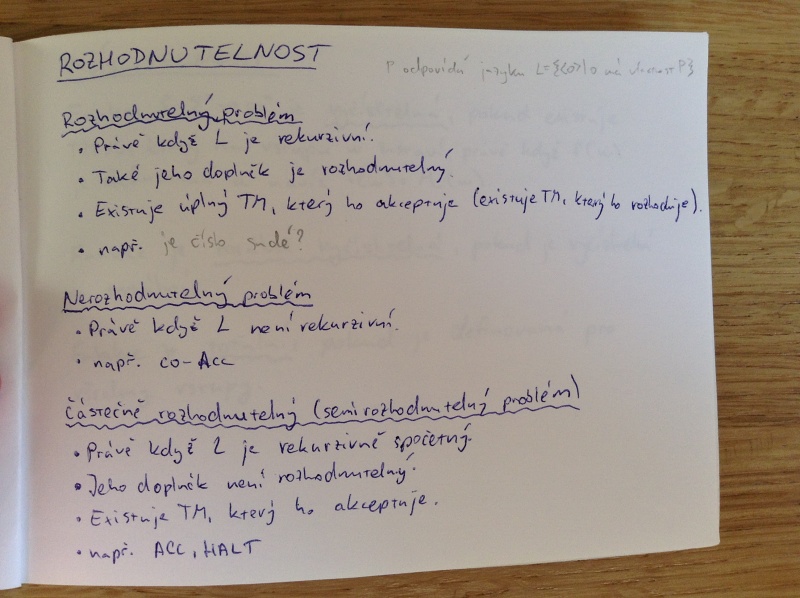 ROZHODNUTELNOST
P odpovídá jazyku L={<o>|o má vlastnost P}
Rozhodnutelný problém
• Právě když L je rekurzivní.
• Také jeho doplněk je rozhodnutelný.
• Existuje úplný TM, který ho akceptuje (existuje TM, který ho rozhoduje).
• např. je číslo sudé?
Nerozhodnutelný problém
• Právě když L není rekurzivní.
• např. co-Acc
Částečně rozhodnutelný (semirozhodnutelný problém)
• Právě když L je rekurzivně spočetný.
• Jeho doplněk není rozhodnutelný.
• Existuje TM, který ho akceptuje.
• např. ACC, HALT